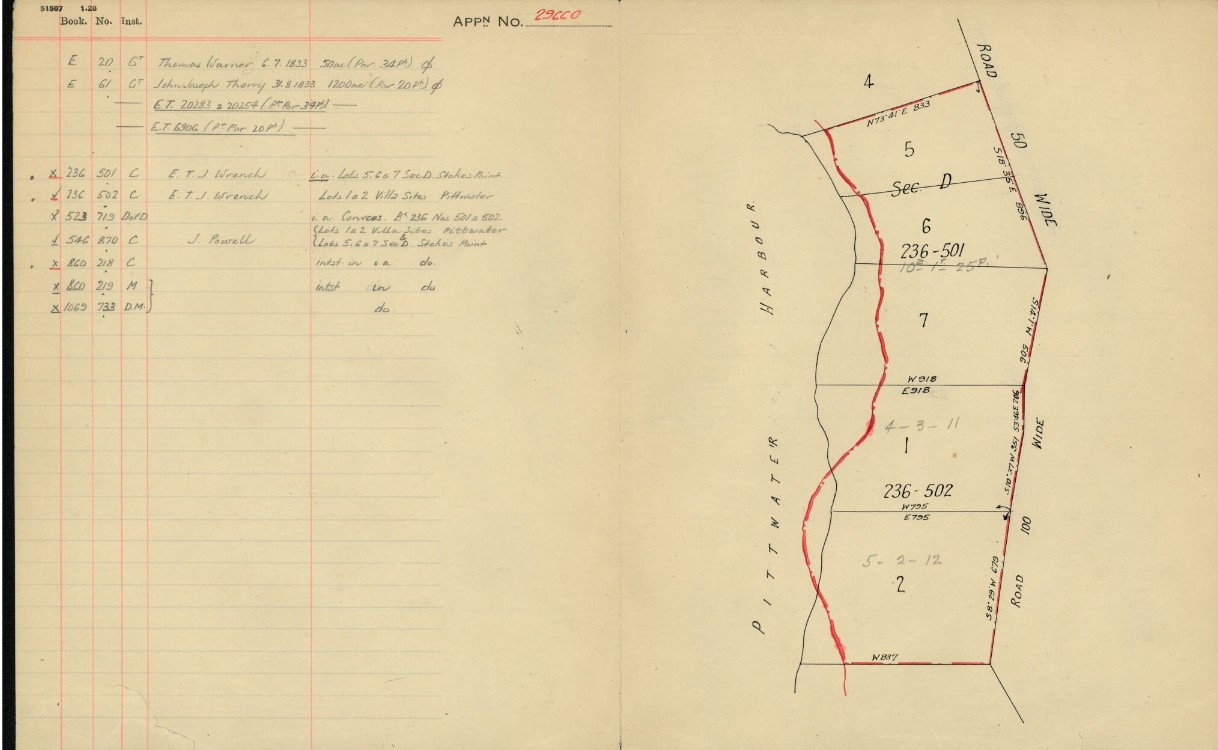 51587 1.28
Book. No. Inst.
APPN No. 29660
E 20 GT Thomas Warner 6.7.1833 50ac (Par. 34Ph) φ
E 61 GT John Joseph Therry 31.8.1833 1200ac (Par 20Ph) φ
E.T. 20283 & 20254 (Pt Par 34Ph)
E.T. 6906 (Pt Par 20Ph)
X 236 501 C E. T. J. Wrench i.a. Lots 5.6 & 7 Sec D. Stokes Point
√ 236 502 C E. T. J. Wrench Lots 1 & 2 Villa Sites Pittwater
X 523 719 D of D i.a. Conveces. Bk 236 Nos 501 & 502
√ 546 870 C J. Powell (Lots 1 & 2 Villa Sites Pittwater
(Lots 5.6 & 7 Sec D. Stokes Point
X 860 218 C intst in i.a do.
X 860 219 M intst in do
X 1069 733 D.M. do
4
ROAD
N73°41'E 833
50
5
S18°36'E 896
Sec D
WIDE
6
236-501
10a 1r 25p.
HARBOUR
7
S14°1'W 506
W 918
E 918
S3°46'E 206
4-3-11
WIDE
1
S10°37'W 351
236-502
W 795
E 795
100
5-2-12
2
S8°29'W 679
ROAD
PITTWATER
W 837